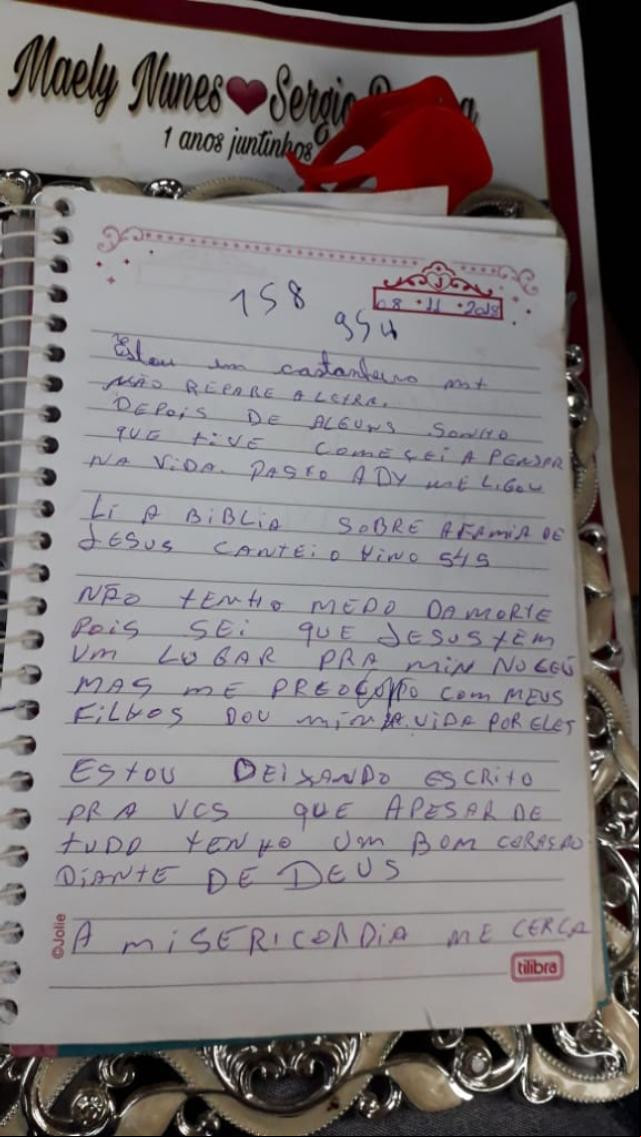 Maely Nunes Sergio
1 anos juntinhos
158
08 11 2018
954
Estou em castanheiro mt
NÃO REPARE A LETRA.
DEPOIS DE ALGUNS SONHO
QUE TIVE COMEÇEI A PENSAR
NA VIDA. PASTO ADY ME LIGOU
LI A BIBLIA SOBRE A FAMIA DE
JESUS CANTEI O HINO 545
NÃO TENHO MEDO DA MORTE
POIS SEI QUE JESUS TEM
UM LUGAR PRA MIN NO CEÚ
MAS ME PREOCUPO COM MEUS
FILHOS DOU MINHA VIDA POR ELES
ESTOU DEIXANDO ESCRITO
PRA VCS QUE APESAR DE
TUDO TENHO UM BOM CORASAO
DIANTE DE DEUS
©Jolie
A MISERICORDIA ME CERCA
tilibra